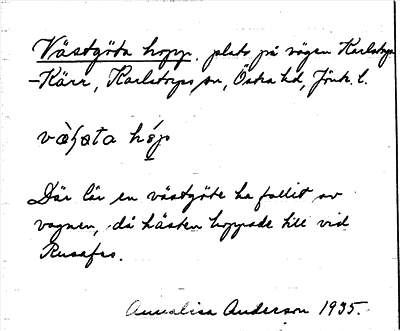 Västgöta hopp. plats på vägen Karlstorp
–Kärr, Karlstorps sn, Östra hd, Jönk. l.
hóp
Där lär en västgöte ha fallit av
vagnen, då hästen hoppade till vid
Annalisa Anderson 1935.